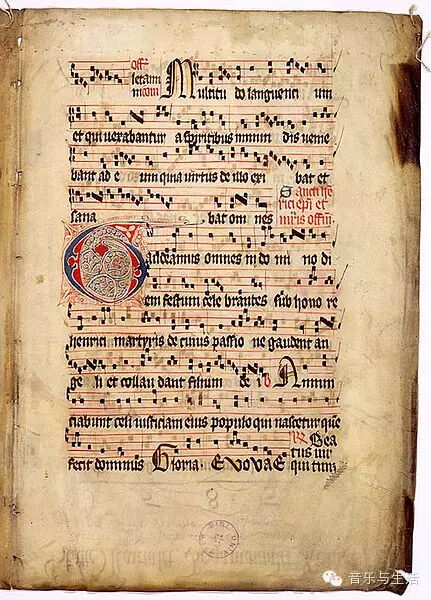 off
letam
mcom Multitu do languenti um
et qui vexabantur a spiritibus immun dis venie
bant ad e um quia virtus de illo exi bat et
sana bat om nes Sancti he
rici epi et
mris offm
Gaudeamus omnes in do mi no di
em festum cele brantes sub hono re
henrici martyris de cuius passio ne gaudent an
ge li et collau dant filium de i v Annun
ciabunt celi iusticiam eius populo qui nascetur que
fecit dominus Gloria. EVOVAE Bea
tus vir
qui tim
音乐与生活